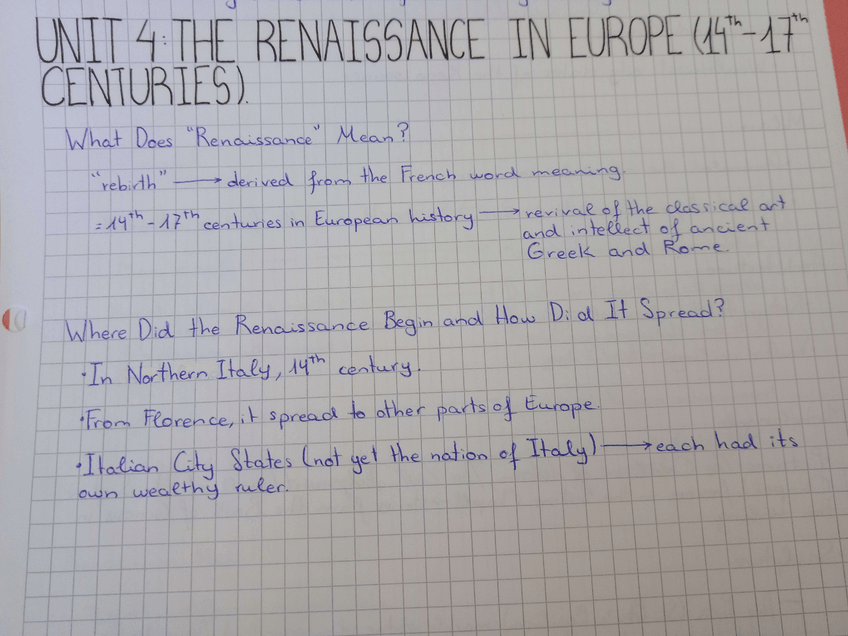 UNIT 4: THE RENAISSANCE IN EUROPE (14th-17th
CENTURIES).
What Does "Renaissance" Mean?
"rebirth" → derived from the French word meaning.
= 14th-17th centuries in European history → revival of the classical art
and intellect of ancient
Greek and Rome.
Where Did the Renaissance Begin and How Did It Spread?
·In Northern Italy, 14th century.
·From Florence, it spread to other parts of Europe.
·Italian City States (not yet the nation of Italy) → each had its
own wealthy ruler.